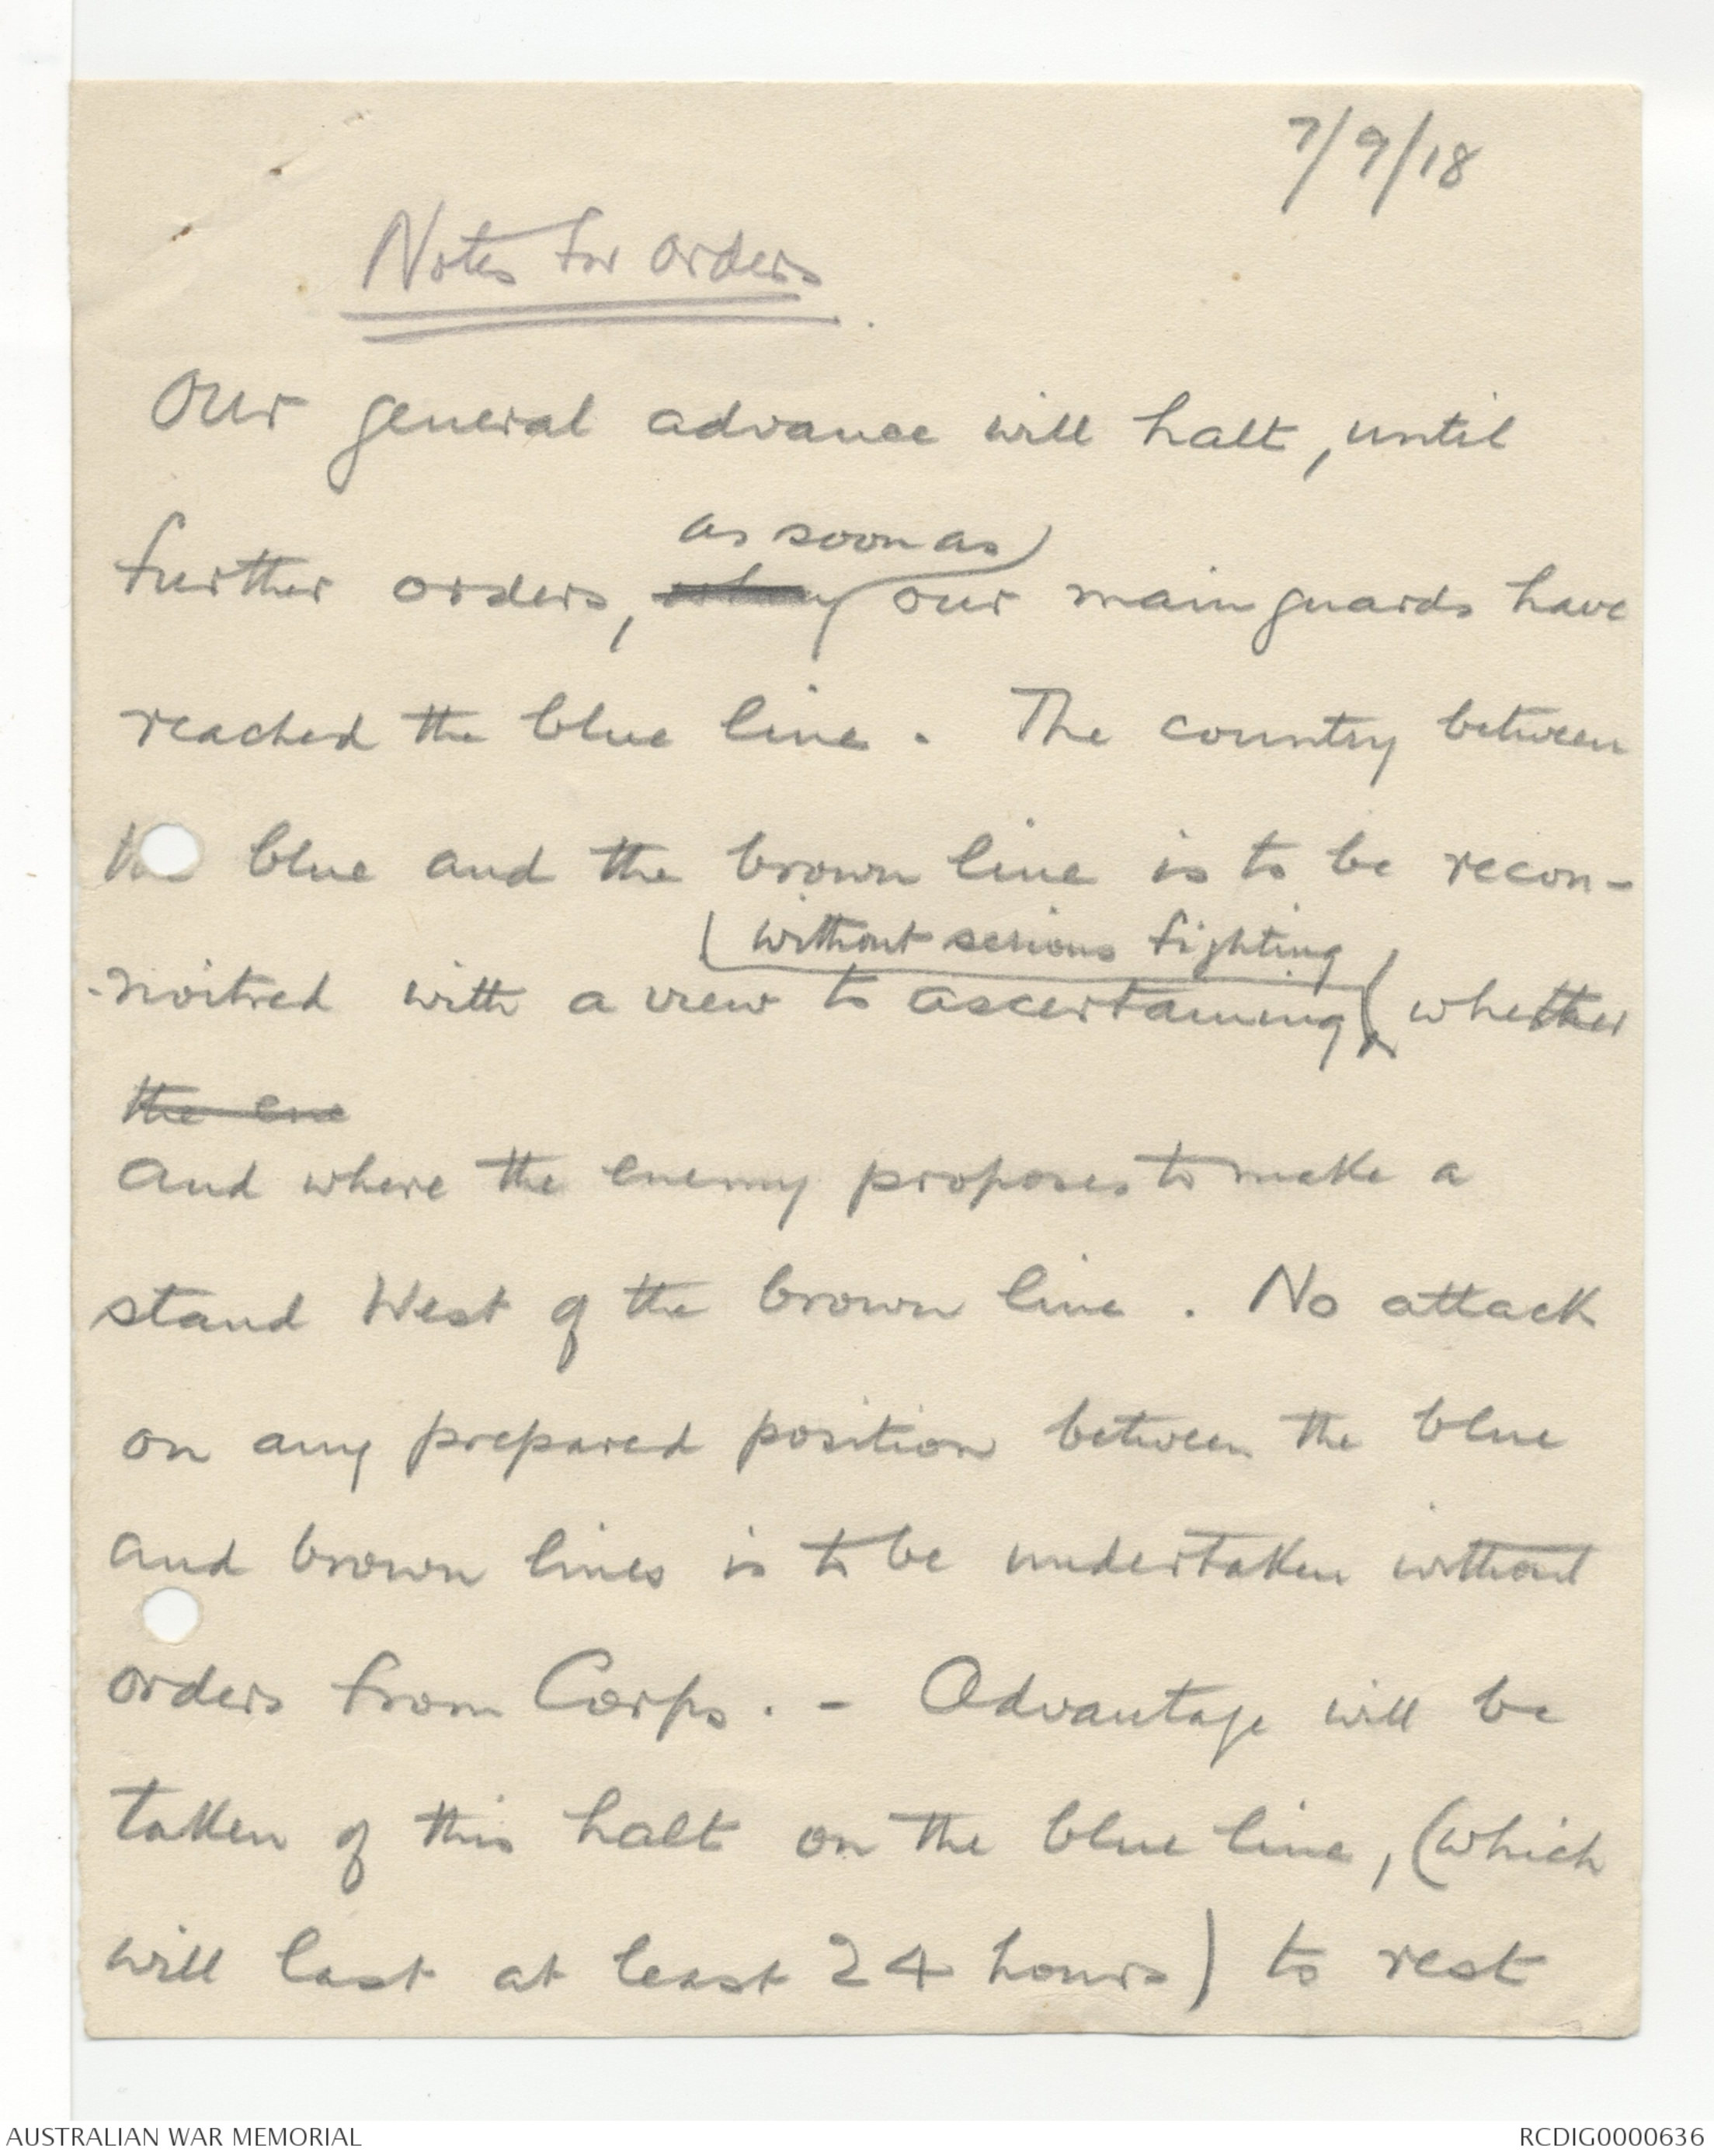 7/9/18
Notes for orders.
Our general advance will halt, until
as soon as
further orders, when our main guards have
reached the blue line. The country between
the blue and the brown line is to be recon-
without serious fighting
-noitred with a view to ascertaining whether
the ene
and where the enemy proposes to make a
stand West of the brown line. No attack
on any prepared position between the blue
and brown lines is to be undertaken without
orders from Corps. - Advantage will be
taken of this halt on the blue line, (which
will last at least 24 hours) to rest
AUSTRALIAN WAR MEMORIAL
RCDIG0000636